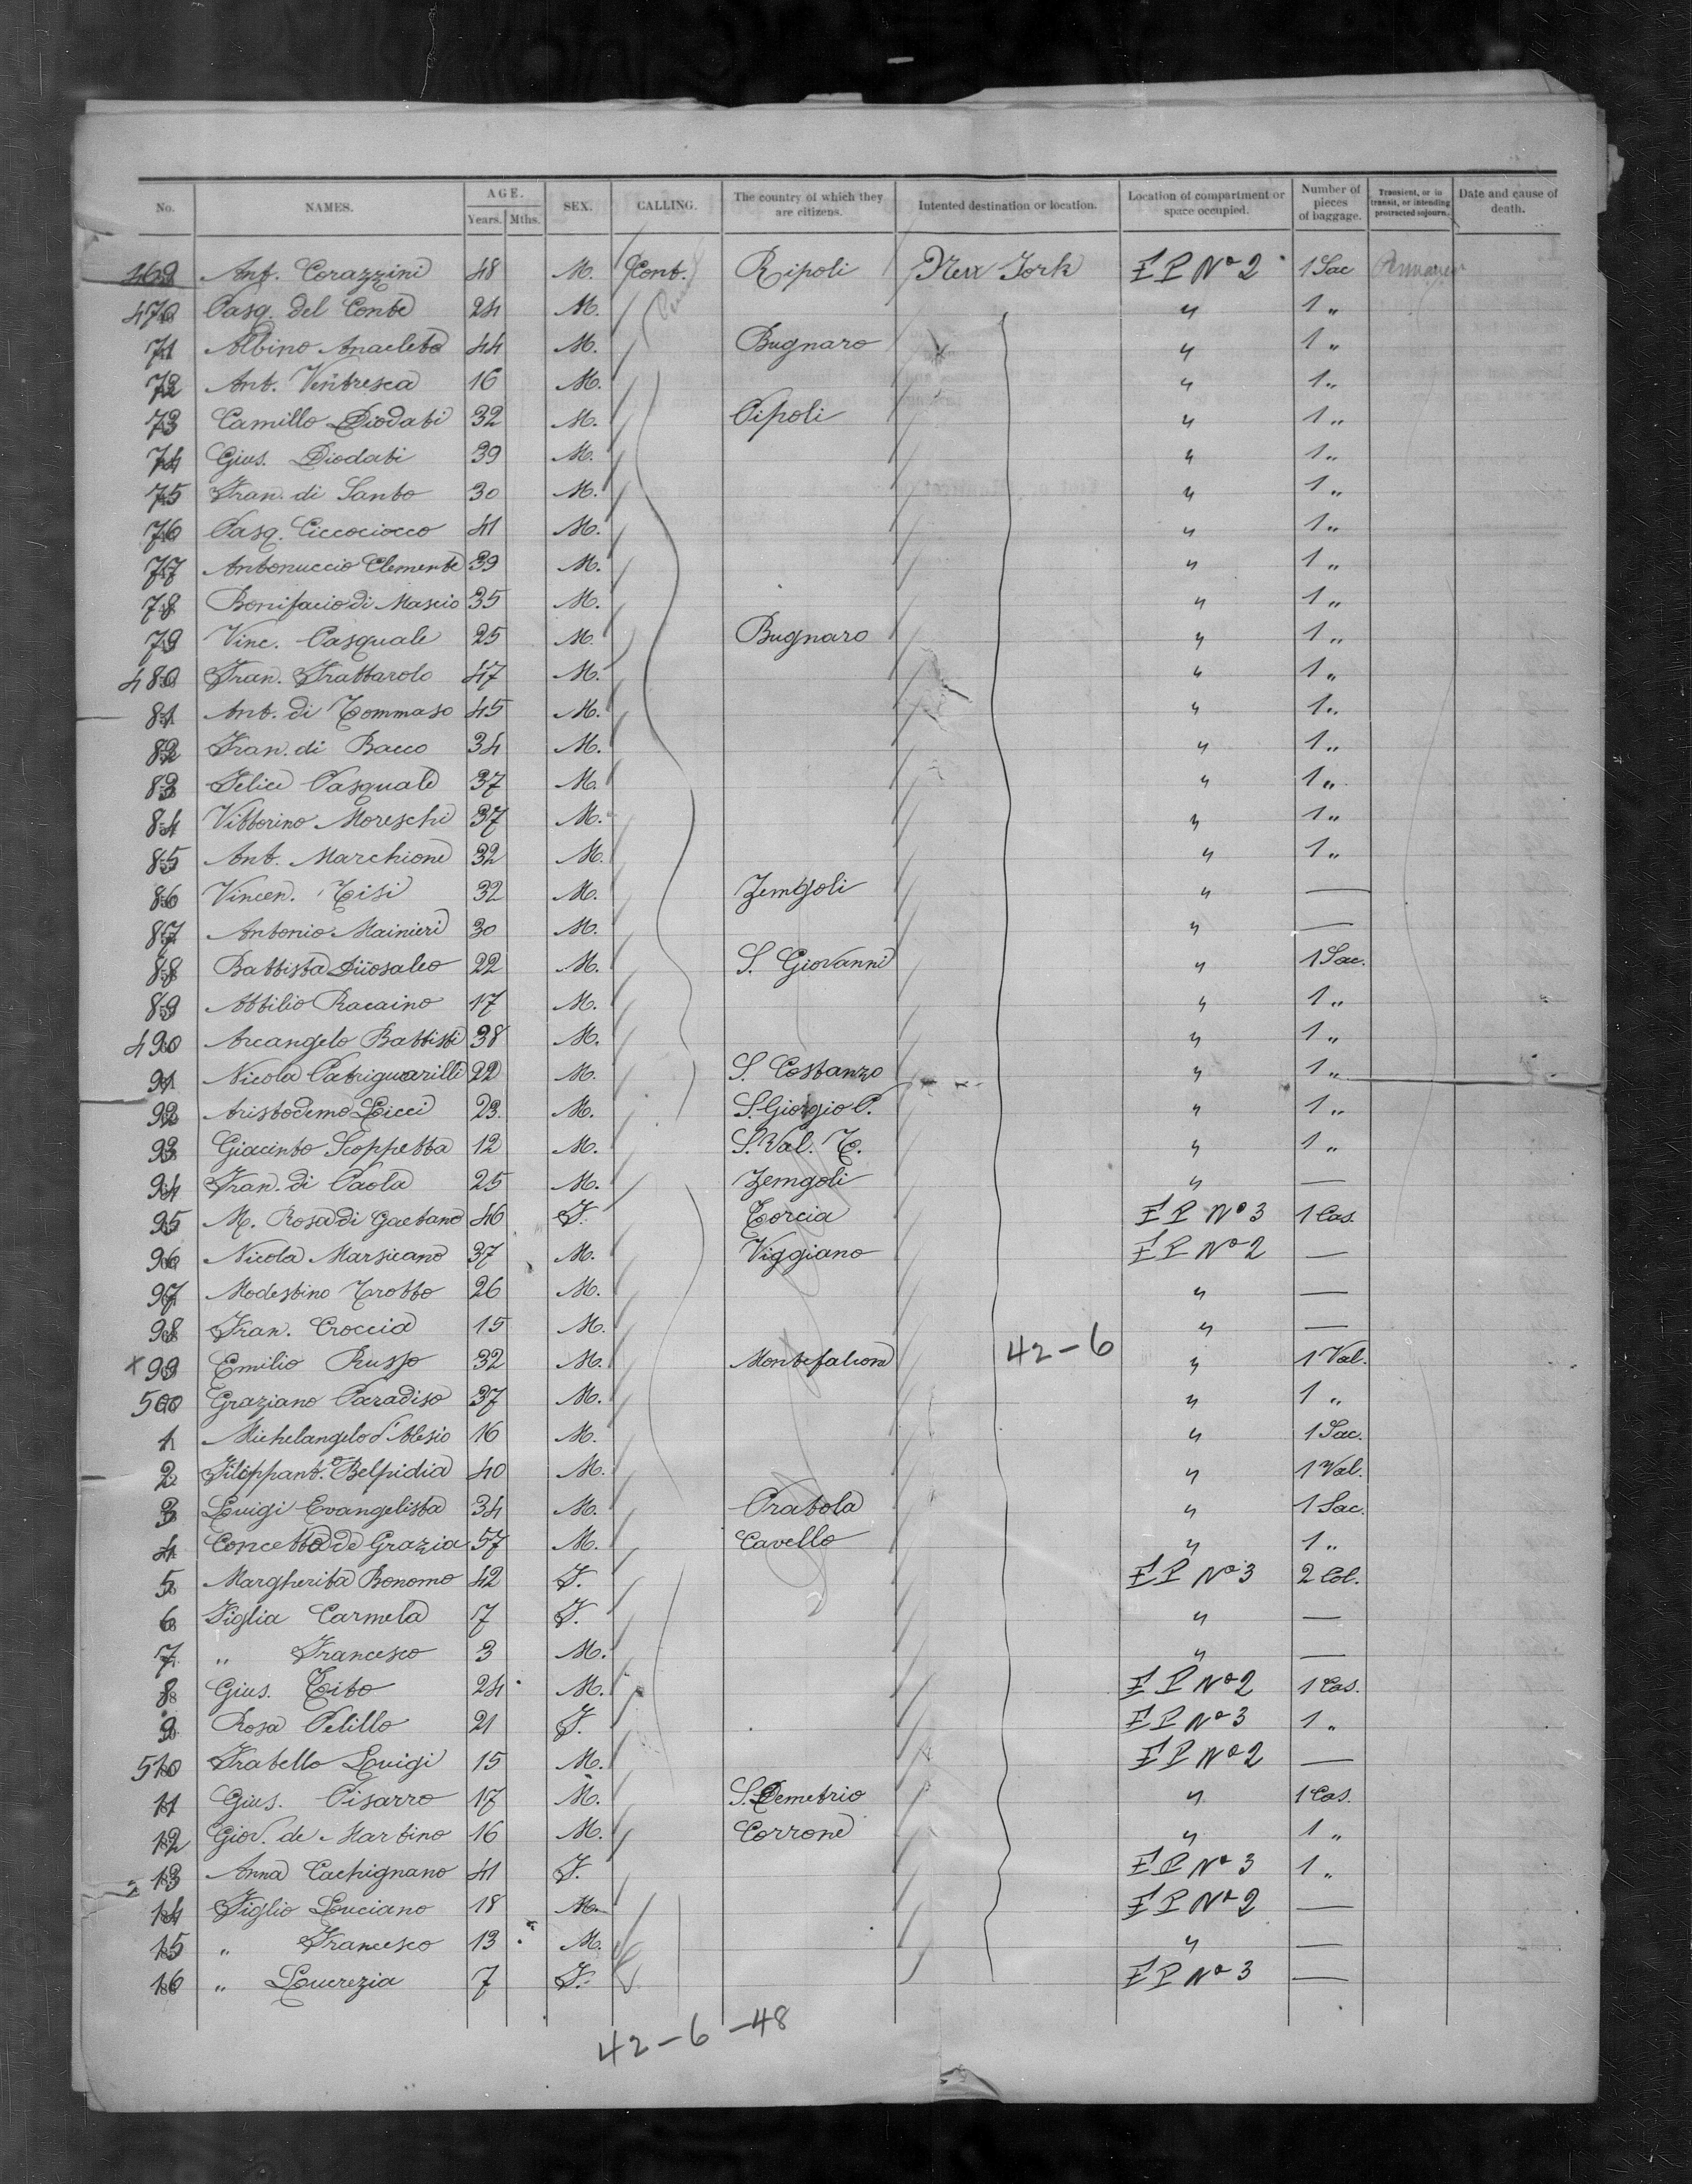 No. NAMES. AGE. Years. Mths. SEX. CALLING. The country of which they are citizens. Intented destination or location. Location of compartment or space occupied. Number of pieces of baggage. Transient, or in transit, or intending protracted sojourn. Date and cause of death.
469 Ant. Corazzini 48 M. Cont. Ripoli New York E P No 2 1 Sac
470 Pasq. del Conte 24 M. " 1 "
71 Albino Anacleto 44 M. Bugnaro " 1 "
72 Ant. Ventresca 16 M. " 1 "
73 Camillo Diodati 32 M. Pipoli " 1 "
74 Gius. Diodati 39 M. " 1 "
75 Fran. di Santo 30 M. " 1 "
76 Pasq. Ciccociocco 41 M. " 1 "
77 Antonuccio Clemente 39 M. " 1 "
78 Bonifacio di Mascio 35 M. " 1 "
79 Vinc. Pasquale 25 M. Bugnaro " 1 "
480 Fran. Frattarolo 47 M. " 1 "
81 Ant. di Tommaso 45 M. " 1 "
82 Fran. di Bacco 34 M. " 1 "
83 Felice Pasquale 37 M. " 1 "
84 Vittorino Moreschi 37 M. " 1 "
85 Ant. Marchione 32 M. " 1 "
86 Vincen. Tisi 32 M. Zemgoli " —
87 Antonio Mainieri 30 M. " —
88 Battista 22 M. S. Giovanni " 1 Sac.
89 Attilio Racaino 17 M. " 1 "
490 Arcangelo Battisti 38 M. " 1 "
91 Nicola 22 M. S. Costanzo " 1 "
92 Aristodemo Licci 23 M. S. Giorgio P. " 1 "
93 Giacinto Scoppetta 12 M. S. Val. T. " 1 "
94 Fran. di Paola 25 M. Zemgoli " —
95 M. Rosa di Gaetano 46 F. Torcia E P No 3 1 Cas.
96 Nicola Marsicano 37 M. Viggiano E P No 2 —
97 Modestino Trotto 26 M. " —
98 Fran. Croccia 15 M. " —
x 99 Emilio Russo 32 M. Montefalcone 42-6 " 1 Val.
500 Graziano Paradiso 37 M. " 1 "
1 Michelangelo d'Alesio 16 M. " 1 Sac.
2 Filippant.o Belpidia 40 M. " 1 Val.
3 Luigi Evangelista 34 M. Pratola " 1 Sac.
4 Concetto de Grazia 57 M. Cavello " 1 "
5 Margherita Bonomo 42 F. E P No 3 2 Col.
6 Figlia Carmela 7 F. " —
7 " Francesco 3 M. " —
8 Gius. Tito 24 M. E P No 2 1 Cas.
9 Rosa Petillo 21 F. E P No 3 1 "
510 Fratello Luigi 15 M. E P No 2 —
11 Gius. Pisarro 17 M. S. Demetrio " 1 Cas.
12 Giov. de Martino 16 M. Corrone " 1 "
13 Anna Cachignano 41 F. E P No 3 1 "
14 Figlio Luciano 18 M. E P No 2 —
15 " Francesco 13 M. " —
16 " Lucrezia 7 F. E P No 3 —
42-6-48